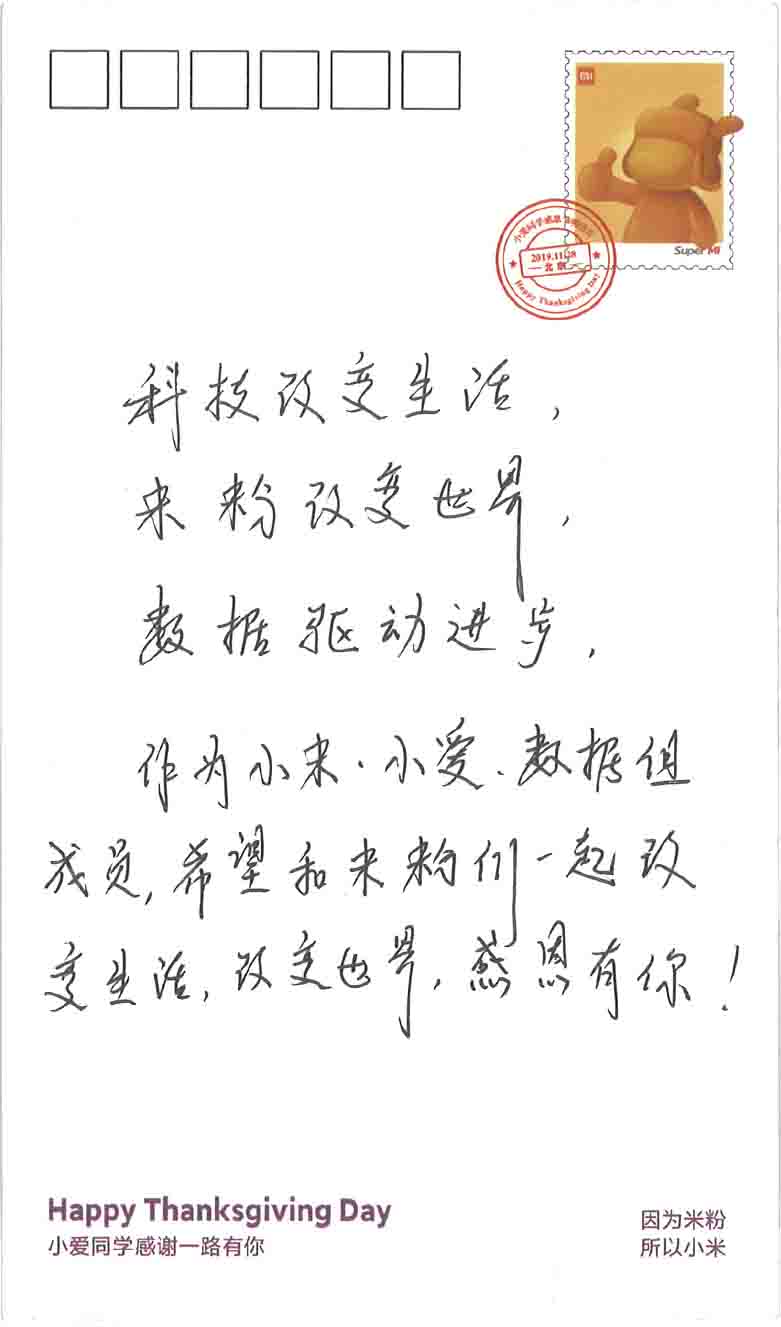 MI
Super MI
2019.11.28
北京
Happy Thanksgiving Day
科技改变生活，
米粉改变世界，
数据驱动进步，
作为小米·小爱、数据组
成员，希望和米粉们一起改
变生活，改变世界，感恩有你！
Happy Thanksgiving Day
小爱同学感谢一路有你
因为米粉
所以小米